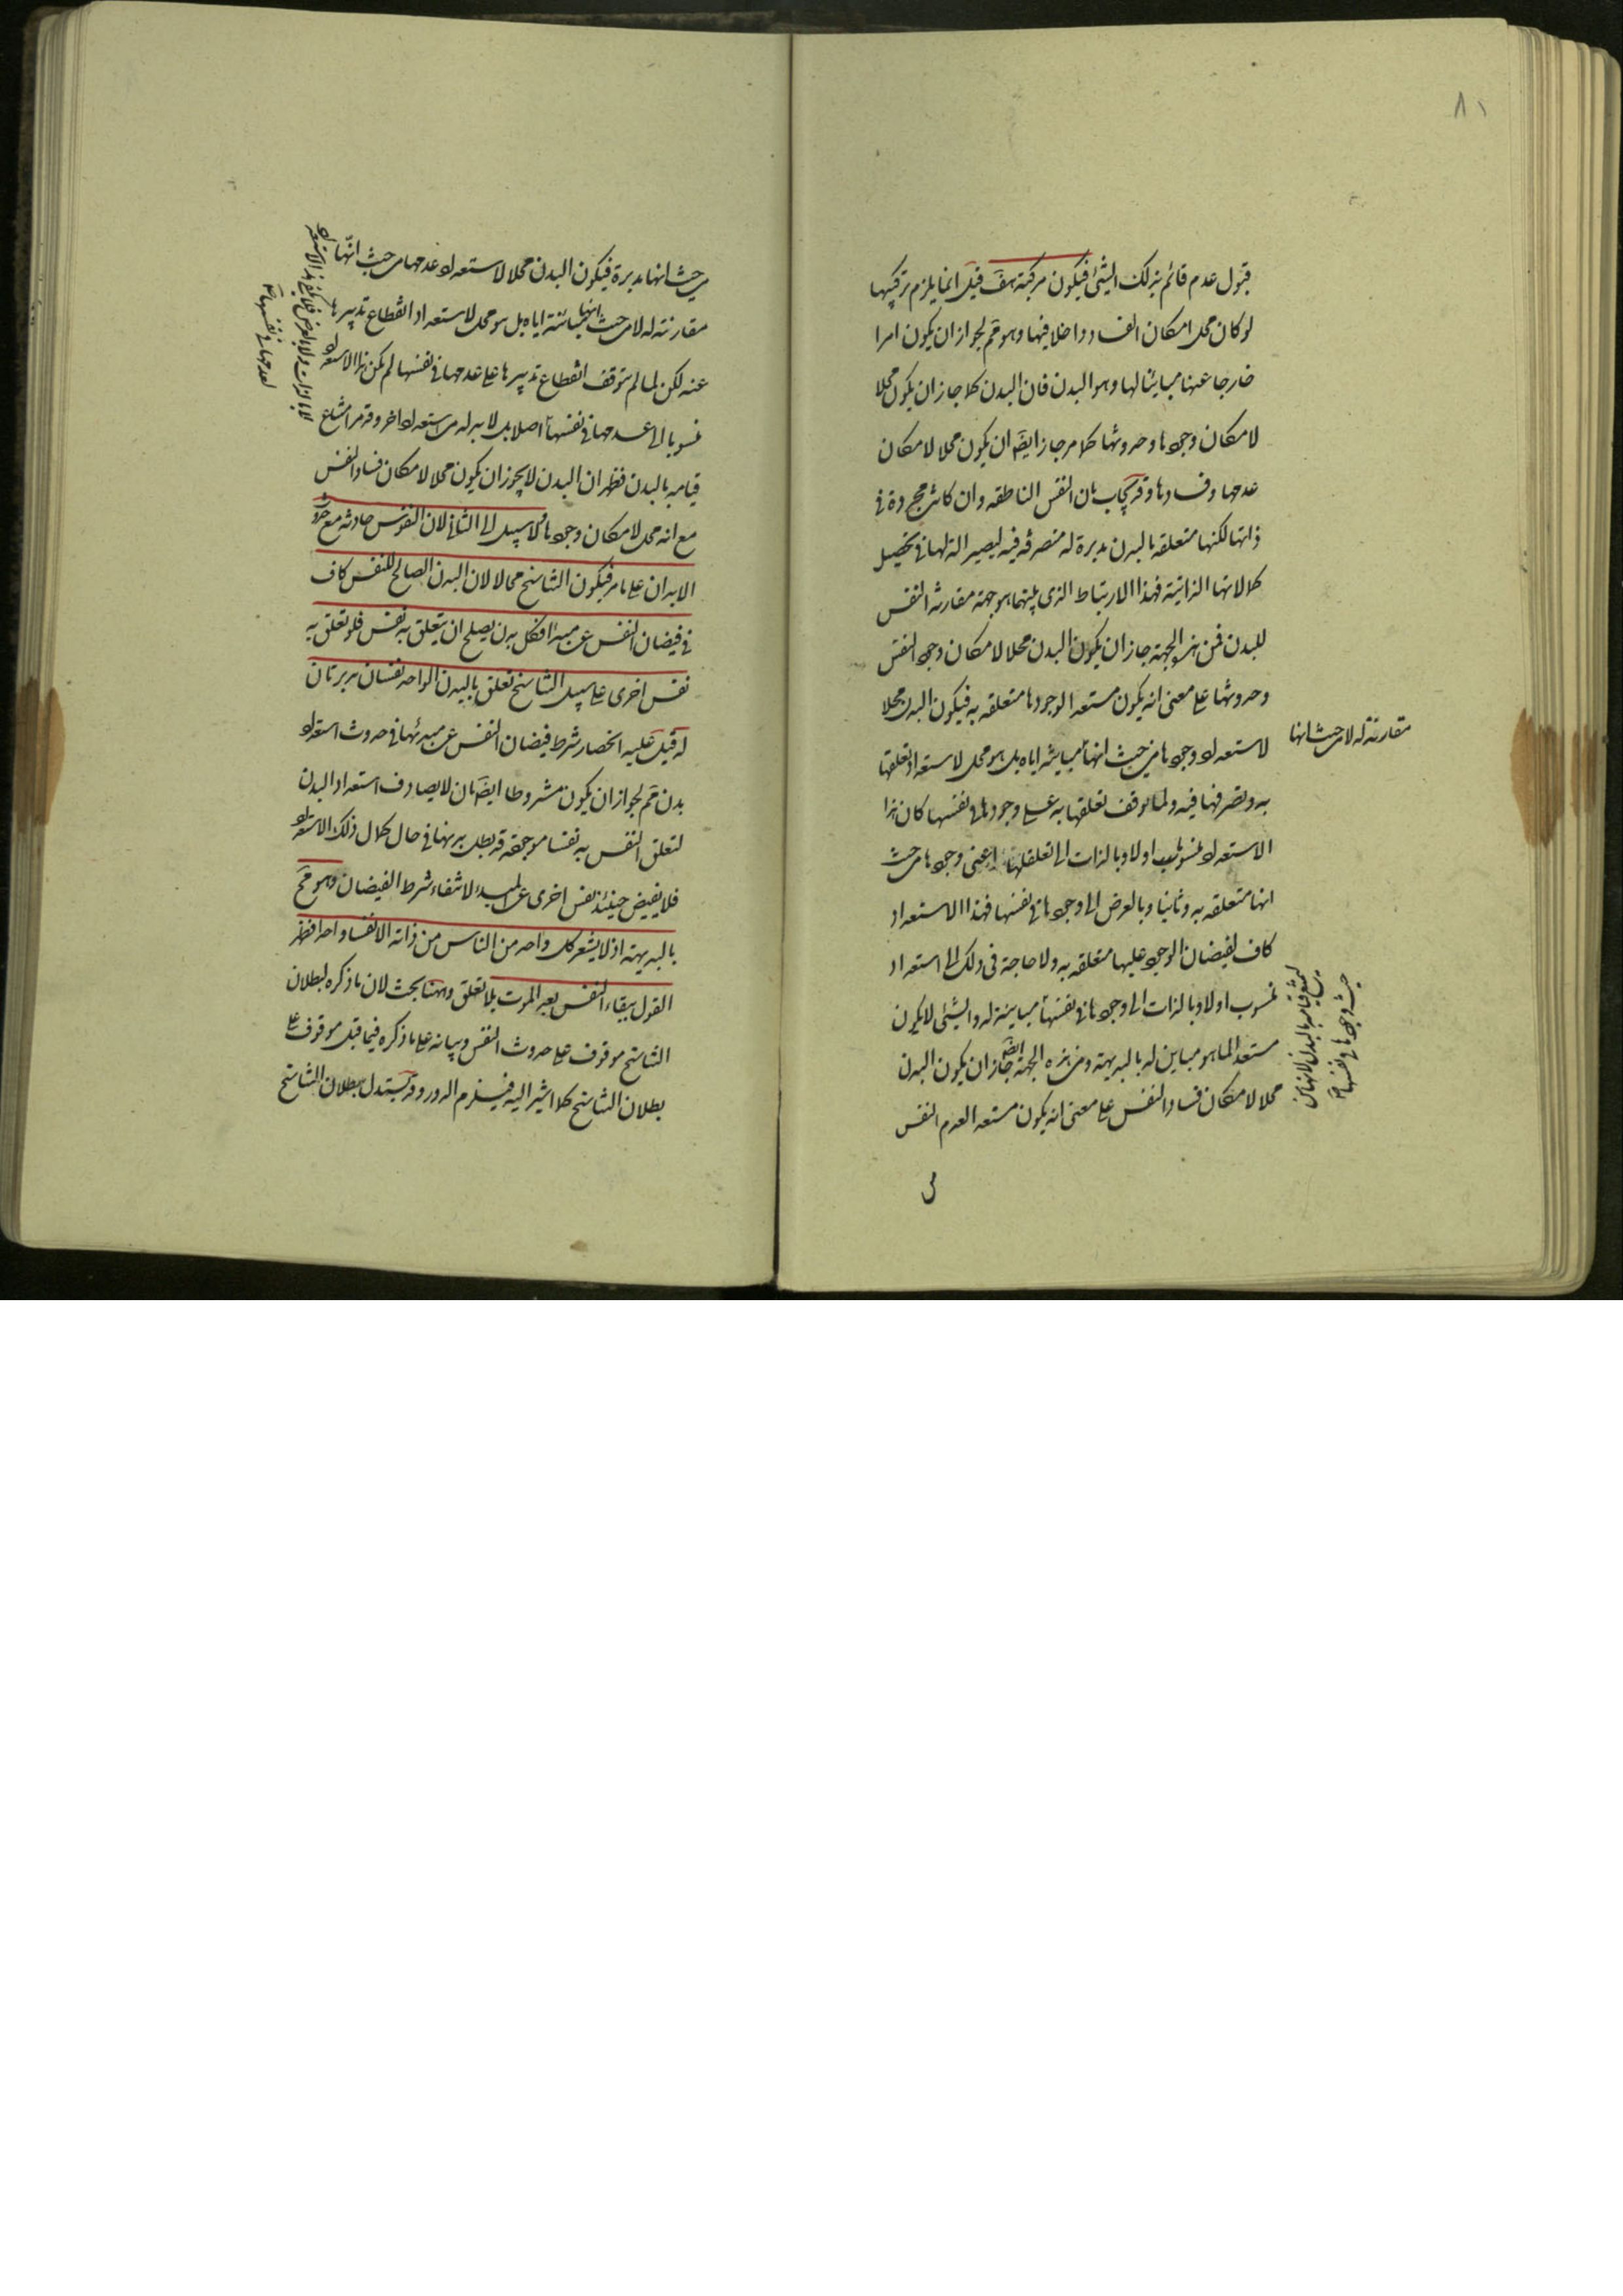 ٨١
قبول عدم قائم بذلك الشئ فيكون مركبة هف قيل انما يلزم تركيبها
لو كان محل امكان الفساد داخلا فيها وهو مم لجواز ان يكون امرا
خارجا عنها مباينا لها وهو البدن فان البدن كما جاز ان يكون محلا
لامكان وجودها وحدوثها كما مر جاز ايضا ان يكون محلا لامكان
عدمها وفسادها وقد يجاب بان النفس الناطقه وان كانت مجردة فى
ذاتها لكنها متعلقه بالبدن مدبرة له متصرفه فيه ليصير الة لها فى تحصيل
كمالاتها الذاتية فهذا الارتباط الذى بينهما هو جهة مقارنة النفس
للبدن فمن هذه الجهة جاز ان يكون البدن محلا لامكان وجود النفس
وحدوثها على معنى انه يكون مستعدا لوجودها متعلقه به فيكون البدن محلا
لاستعداد وجودها من حيث انها مباينة اياه بل هو محل لاستعداد تعلقها
مقارنة له لا من حيث انها
به وتصرفها فيه ولما توقف تعلقها به على وجودها فى نفسها كان هذا
الاستعداد منسوبا اولا وبالذات الى تعلقها اعنى وجودها من حيث
انها متعلقه به وثانيا وبالعرض الى وجودها فى نفسها فهذا الاستعداد
كاف لفيضان الوجود عليها متعلقه به ولا حاجة فى ذلك الى استعداد
منسوب اولا وبالذات الى وجودها فى نفسها مباينة له والشئ لا يكون
ليمتنع قيامه بالبدن لانها من
حيث وجودها فى نفسها
مستعدا لما هو مباين له بالبديهة ومن هذه الجهة ايضا جاز ان يكون البدن
محلا لامكان فساد النفس على معنى انه يكون مستعدا لعدم النفس
من
من حيث انها مدبرة فيكون البدن محلا لاستعداد عدمها من حيث انها
مقارنة له لا من حيث انها مباينة اياه بل هو محل لاستعداد انقطاع تدبيرها
عنه لكن لما لم يتوقف انقطاع تدبيرها على عدمها فى نفسها لم يكن هذا الاستعداد
منسوبا الى عدمها فى نفسها اصلا بل لا بد له من استعداد اخر وقد مر امتناع
لا بالذات ولا بالعرض فلا يكفى هذا الاستعداد
لعدمها فى نفسها
قيامه بالبدن فظهر ان البدن لا يجوز ان يكون محلا لامكان فساد النفس
مع انه محل لامكان وجودها ولا سبيل الى الثانى لان النفوس حادثه مع حدوث
الابدان على ما مر فيكون التناسخ محالا لان البدن الصالح للنفس كاف
فى فيضان النفس عن مبدأ فكل بدن يصلح ان يتعلق به نفس فلو تعلق به
نفس اخرى على سبيل التناسخ تعلق بالبدن الواحد نفسان مدبرتان
له قيل عليه انحصار شرط فيضان النفس عن مبدئها فى حدوث استعداد
بدن مم لجواز ان يكون مشروطا ايضا بان لا يصادف استعداد البدن
لتعلق النفس به نفسا موجودة قد بطل بدنها فى حال كمال ذلك الاستعداد
فلا يفيض حينئذ نفس اخرى عن المبدء لانتفاء شرط الفيضان وهو مح
بالبديهة اذ لا يشعر كل واحد من الناس من ذاته الا نفسا واحدا فظهر
القول ببقاء النفس بعد الموت بلا تعلق وههنا بحث لان ما ذكره لبطلان
التناسخ موقوف على حدوث النفس وبيانه على ما ذكره فيما قبل موقوف على
بطلان التناسخ كما اشير اليه فيلزم الدور وقد يستدل ببطلان التناسخ